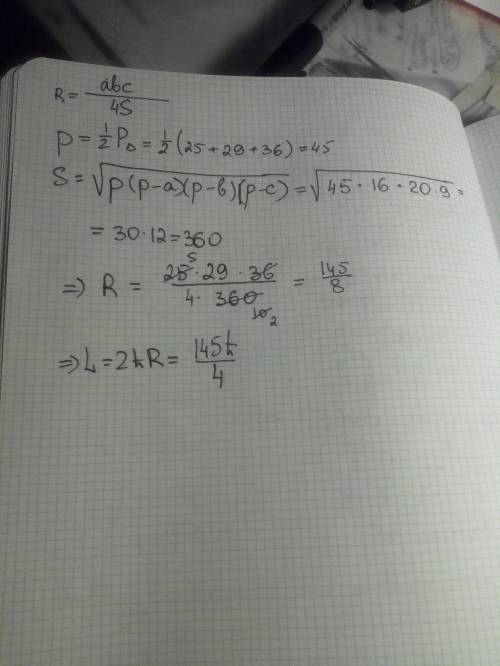 R = abc / 4S
p = 1/2 P△ = 1/2 (25 + 29 + 36) = 45
S = √p(p-a)(p-b)(p-c) = √45 · 16 · 20 · 9 =
= 30 · 12 = 360
⇒ R = 25 5 · 29 · 36 / 4 · 360 10 2 = 145 / 8
⇒ L = 2πR = 145π / 4